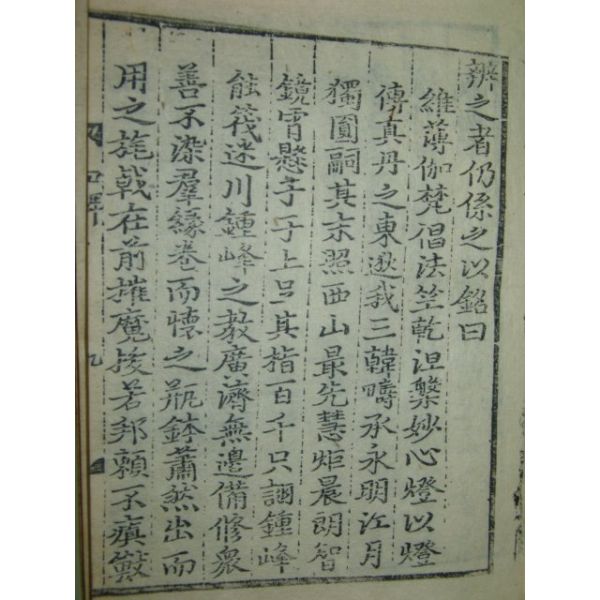 辨之者仍係之以銘曰
維薄伽梵倡法竺乾涅槃妙心燈以燈
傳真丹之東逖我三韓疇承永明江月
獨圓嗣其末照西山最先慧炬晨朗智
鏡霄懸于于上足其指百千只詡鍾峰
能筏迷川鍾峰之教廣濟無邊備修衆
善不染羣緣卷而懷之甁鉢蕭然出而
用之旄戟在前摧魔拔苦邦賴不瘨
九